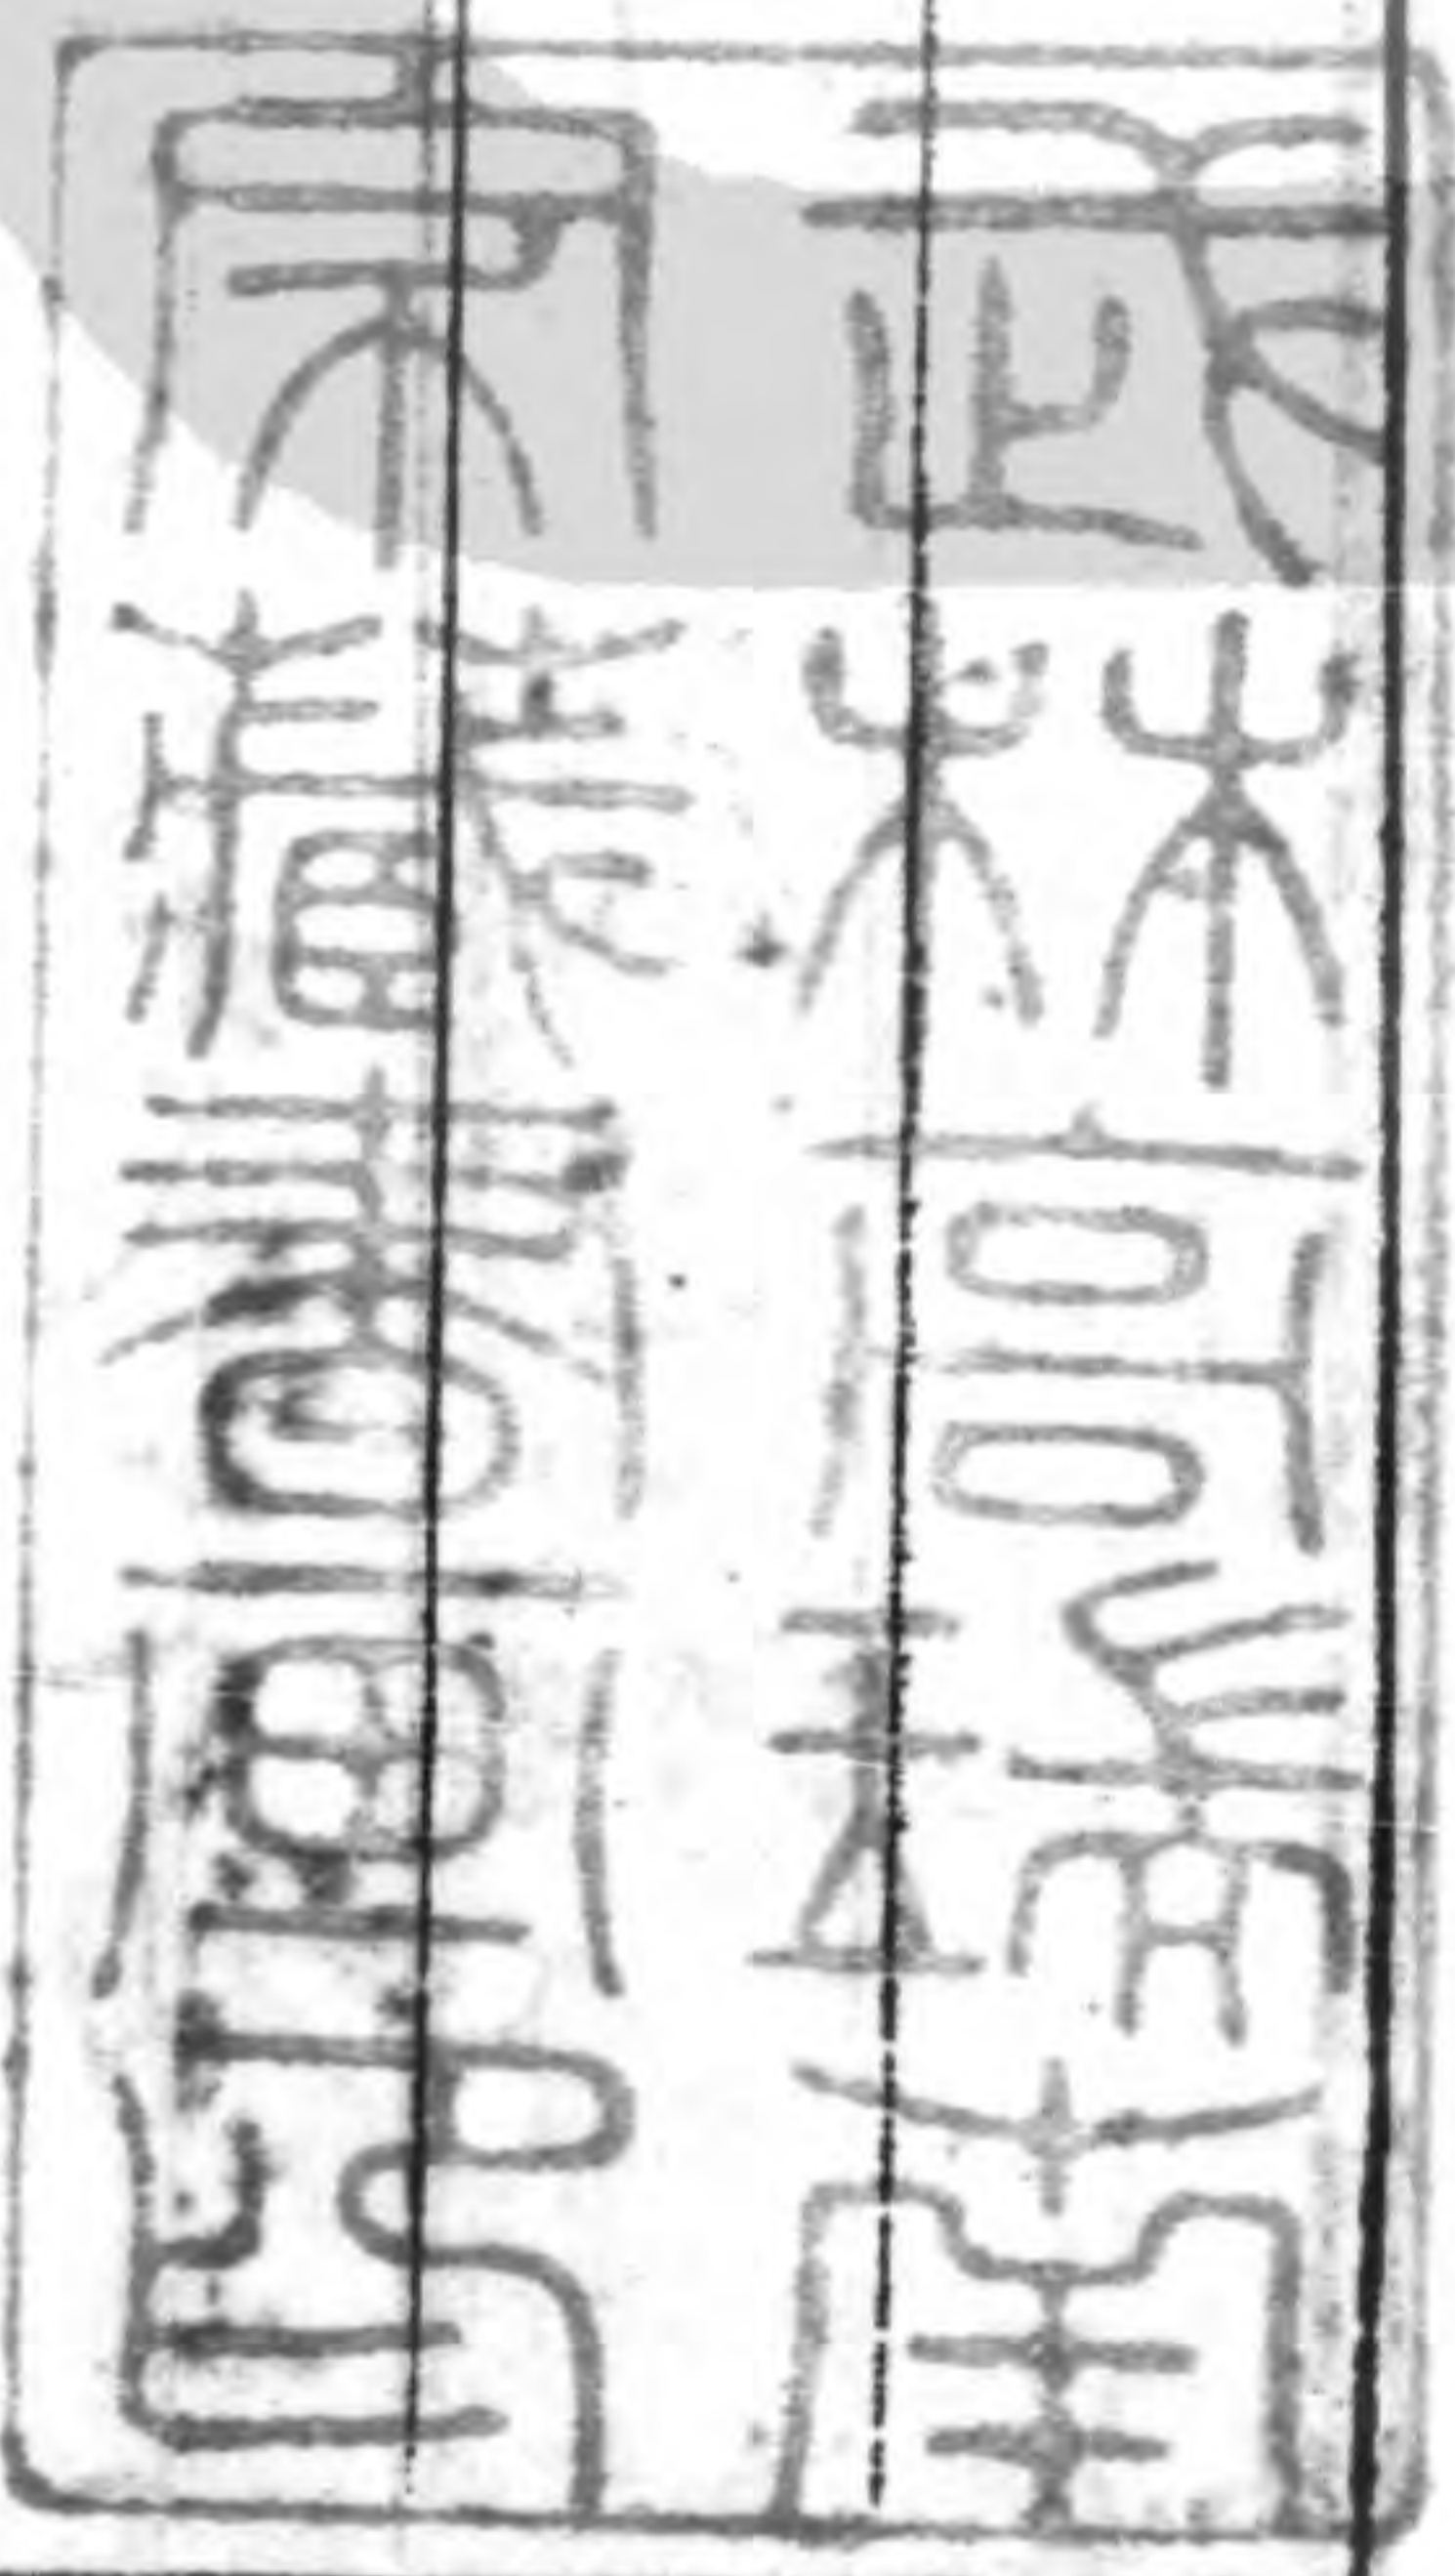 武林高瑞南
家藏書畫記